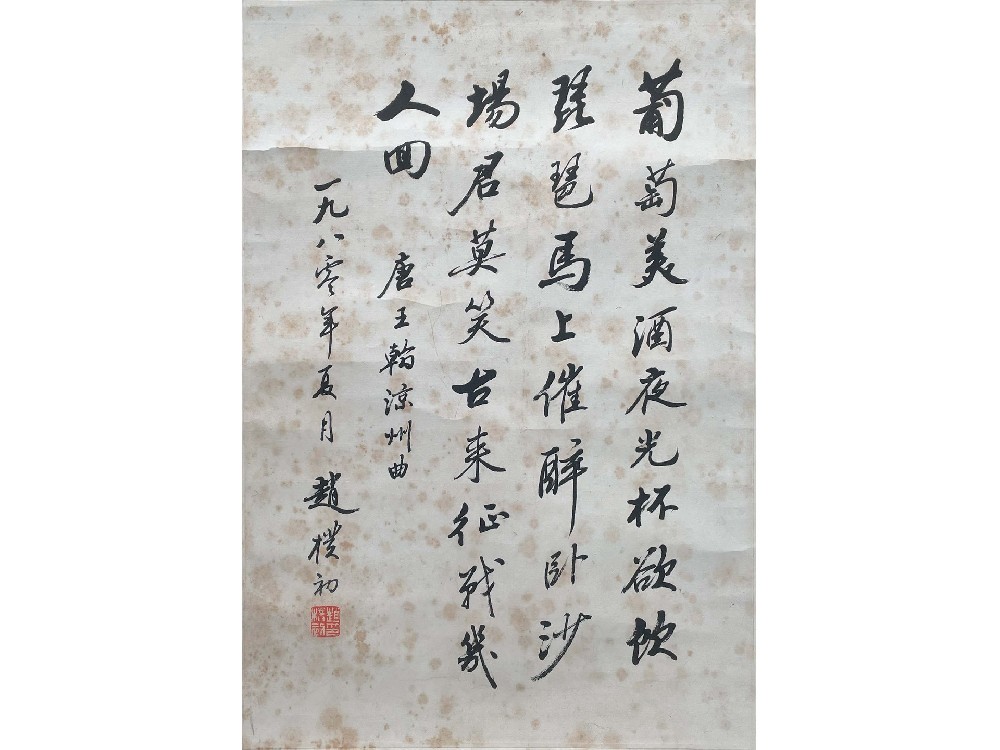 葡萄美酒夜光杯欲飲
琵琶馬上催醉卧沙
場君莫笑古来征戰幾
人回
唐王翰涼州曲
一九八零年夏月 趙樸初
趙樸初印